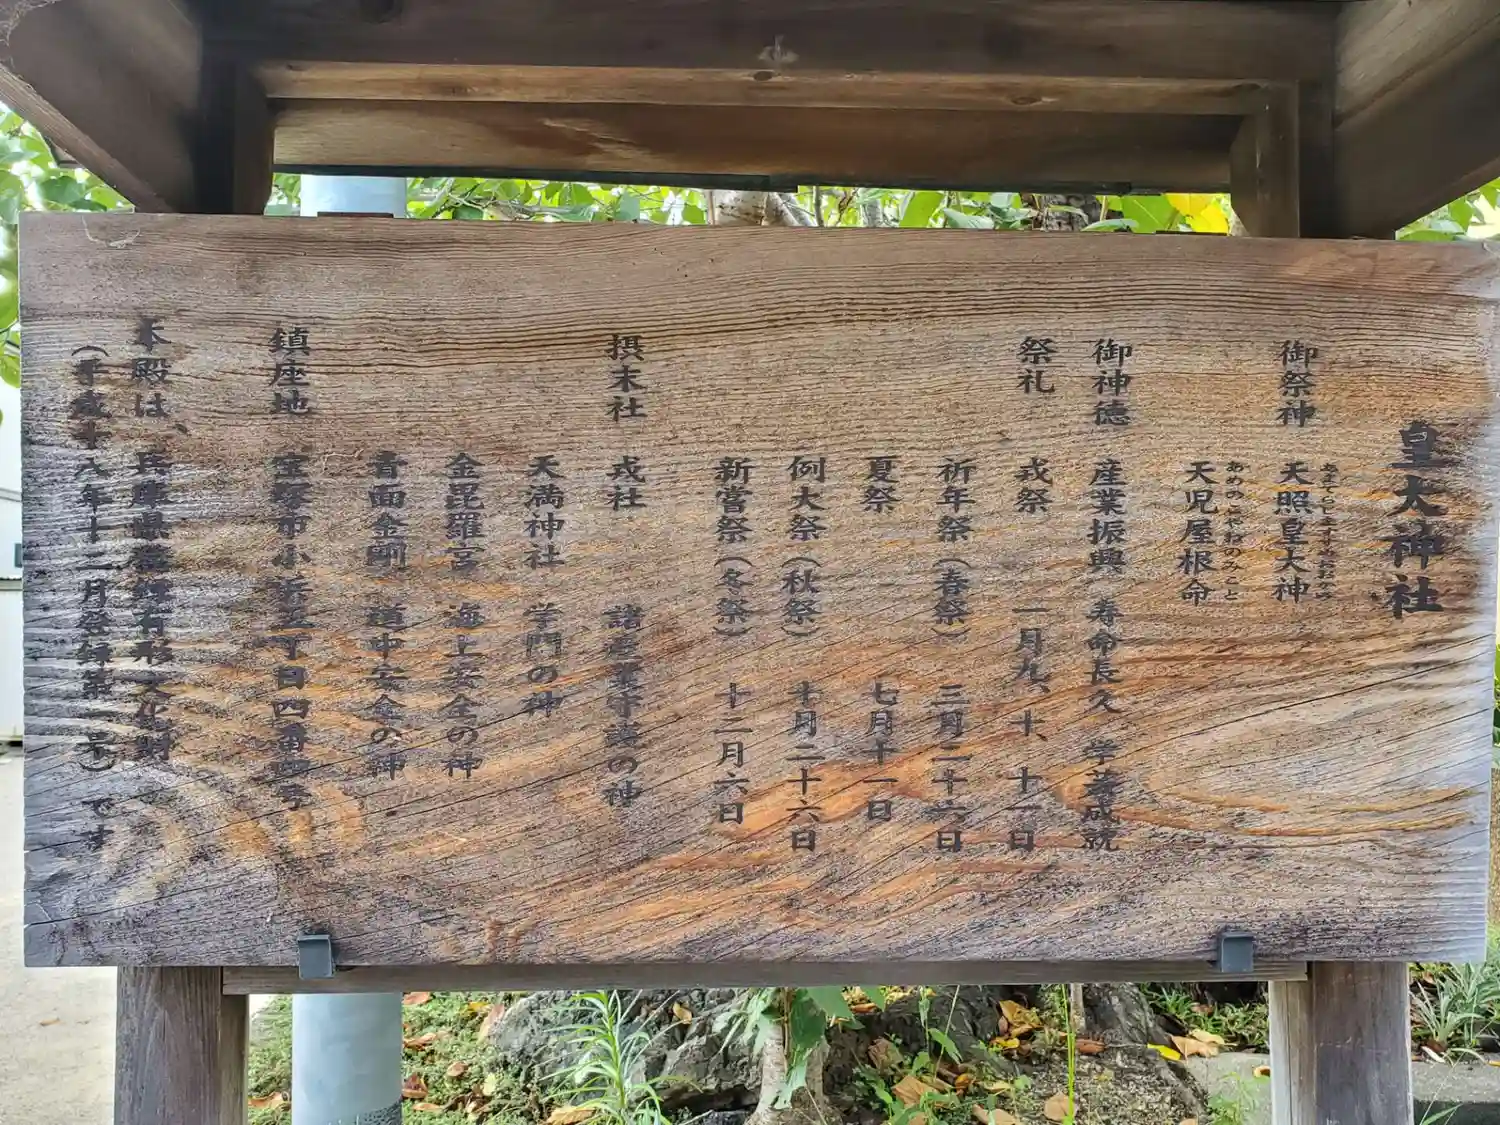 皇大神社
御祭神 天照皇大神
あまてらしますすめおおかみ
天児屋根命
あめのこやねのみこと
御神徳 産業振興 寿命長久 学業成就
祭礼 戎祭 一月九、十、十一日
祈年祭(春祭) 三月二十六日
夏祭 七月十一日
例大祭(秋祭) 十月二十六日
新嘗祭(冬祭) 十二月六日
摂末社 戎社 諸産業守護の神
天満神社 学問の神
金毘羅宮 海上安全の神
青面金剛 道中安全の神
鎮座地 宝塚市小浜五丁目四番
本殿は、兵庫県登録有形文化財
(平成十八年十二月登録第一号)です